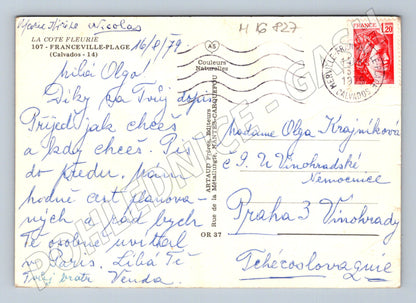 Marie Thérèse Nicolas
H 16 827
LA COTE FLEURIE
107 - FRANCEVILLE-PLAGE
(Calvados - 14)
16/8/79
AS
Couleurs
Naturelles
Milá Olgo!
Díky za Tvůj dopis
Přijeď jak chceš
a kdy chceš. Piš
do předu, mám
hodně cest plánova-
ných a rád bych
Tě osobně uvítal
v Paris. Líbá Tě
Tvůj bratr Venda.
ARTAUD Frères, Editeurs
Rue de la Métallurgie, NANTES-CARQUEFOU
OR 37
REPUBLIQUE FRANCAISE
1,20
CALVADOS
Madame Olga Krajníková
č.p. U Vinohradské
Nemocnice
Praha 3 Vinohrady
Tchécoslovaquie
POHLEDNICE - GASH